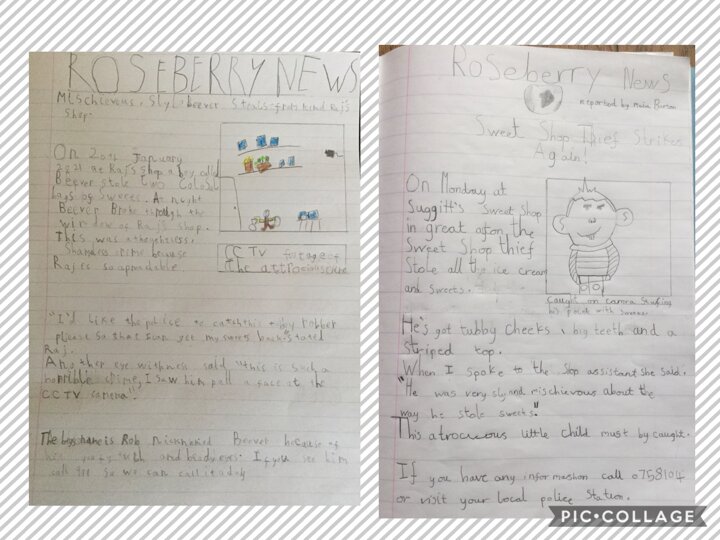 ROSEBERRY NEWS
Mischievous, Sly, Beever Steals from kind Raj's
Shop.
On 20th January
2021 at Raj's shop a boy called
Beever stole two Colosal
bags of sweets. At night
Beever Broke through the
window of Raj's shop.
This was a
Shameless crime because
Raj is so
CCTV footage of
The
"I'd like the police to catch this robber
please so that I can get my sweets back" stated
Raj.
Another eye withness said "this is such a
horrible crime, I saw him pull a face at the
CCTV camera".
The boys name is Rob nicknaked Beever because of
his and beady eyes. If you see him
call so we can call it a day
Roseberry News
reported by
Sweet Shop Thief Strikes
Again!
On Monday at
Suggitt's Sweet Shop
in great the
Sweet Shop thief
Stole all the ice cream
and sweets.
Caught on camera stuffing
his with sweets
He's got tubby cheeks, big teeth and a
striped top.
When I spoke to the shop assistant she said.
"He was very sly and mischievous about the
way he stole sweets".
This little child must by caught.
If you have any call 0758104
or visit your local police Station.
PIC•COLLAGE